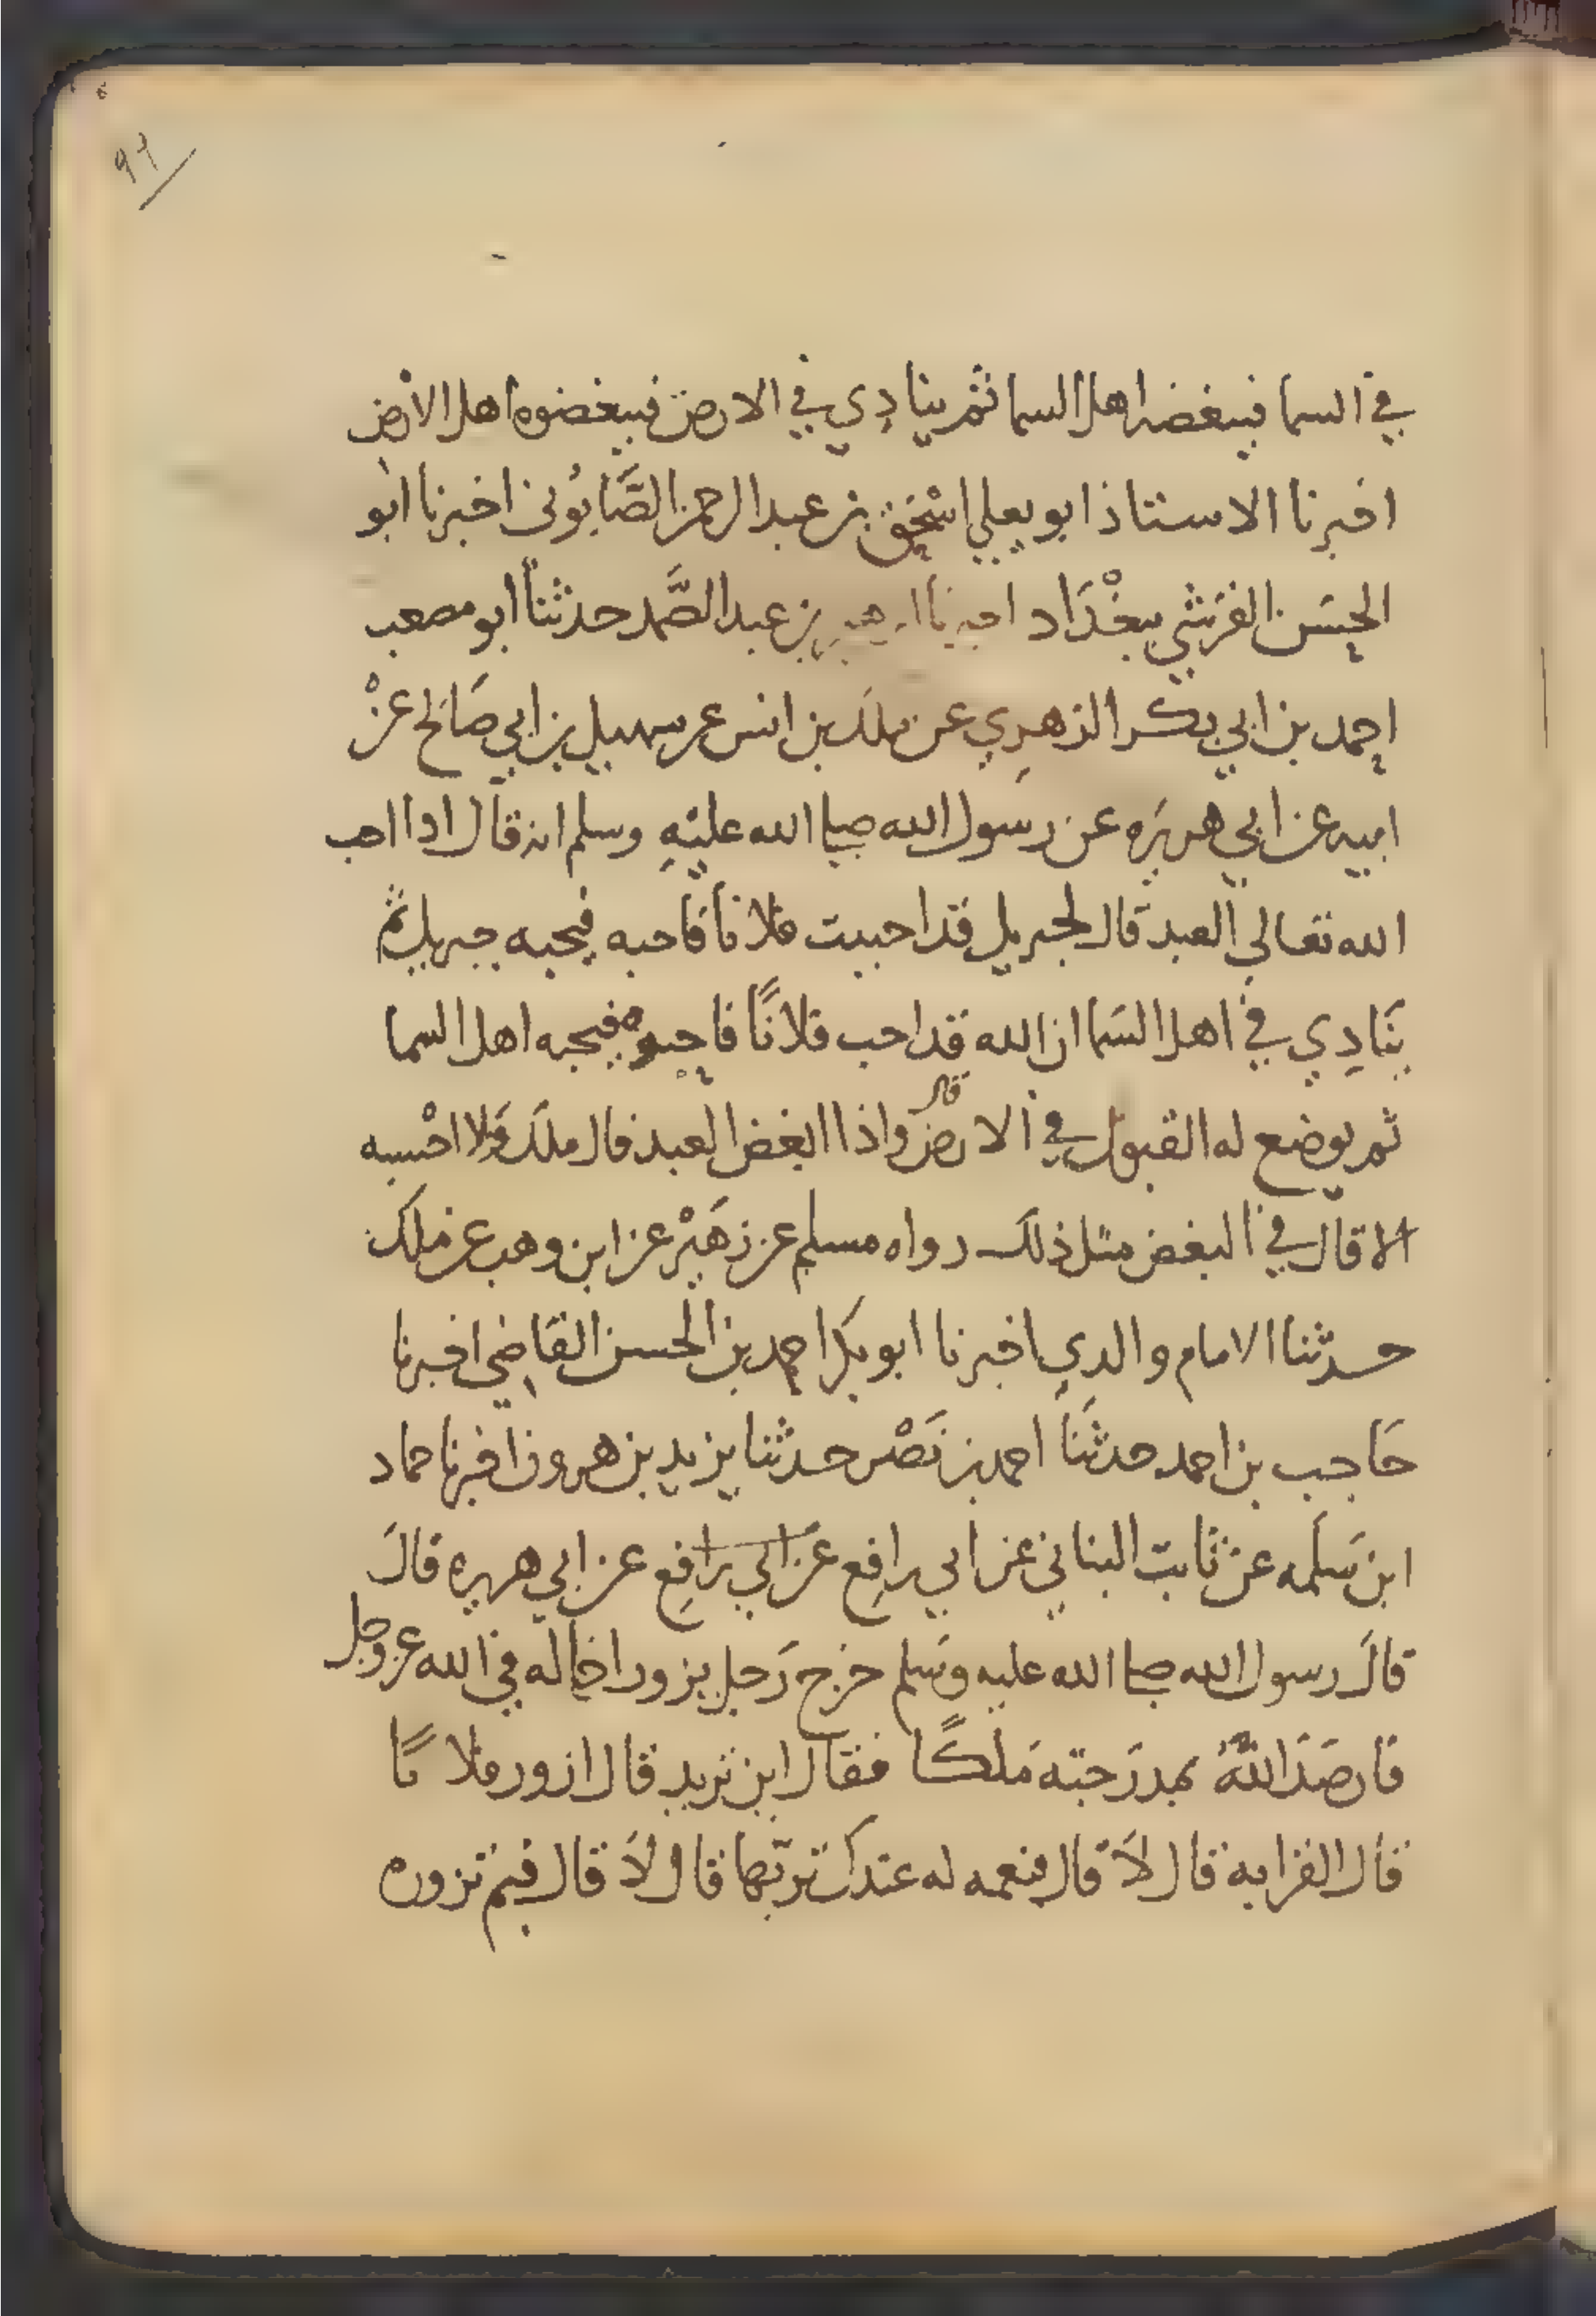 ٩٢
في السما فيبغضه اهل السما ثم ينادي في الارض فيبغضوه اهل الارض
اخبرنا الاستاذ ابو يعلي اسْحَق بن عبد الرحمن الصَّابُوني اخبرنا ابو
الحسَن القرَشي ببغْدَاد اخبرنا ابرهيم بن عبد الصَّمد حدثنا ابو مصعب
احمد بن ابي بكر الزهرِي عن ملك بن انس عن سهيل بن ابي صَالح عنْ
ابيه عن ابي هريرَه عن رسَول الله صلى الله عليْهِ وسلم انه قال اذا احب
الله تعالى العبد قال لجبريل قد احببت فلانا فاحبه فيحبه جبريل ثم
ينَادِي في اهل السَما ان الله قد احب فلانًا فاحبوه فيحبه اهل السما
ثم يوضع له القبول في الارض قال واذا ابغض العبد قال ملك فلا احْسبه
الا قال في البغض مثل ذلك رواه مسلم عن زهَيْر عن ابن وهب عن ملك
حدثنا الامام والدي اخبرنا ابو بكر احمد بن الحسن القاضي اخبرنا
حَاجب بن احمد حدثنَا احمد بن نَصْر حدثنا يزيد بن هرون اخبرنا حماد
ابن سَلَمه عن ثَابت البناني عن ابي رافِع عَن ابي رافِع عن ابي هريره قالَ
قالَ رسول الله صلى الله عليه وسَلم خرج رَجل يزور اخا له في الله عز وجل
فارصَدَ اللهُ بمدرَجته مَلكًا فقال اين تريد قال ازور فلانًا
قال القرابة قال لاَ قال فنعمه له عندك تربّها قال لاَ قال فبم تزوره